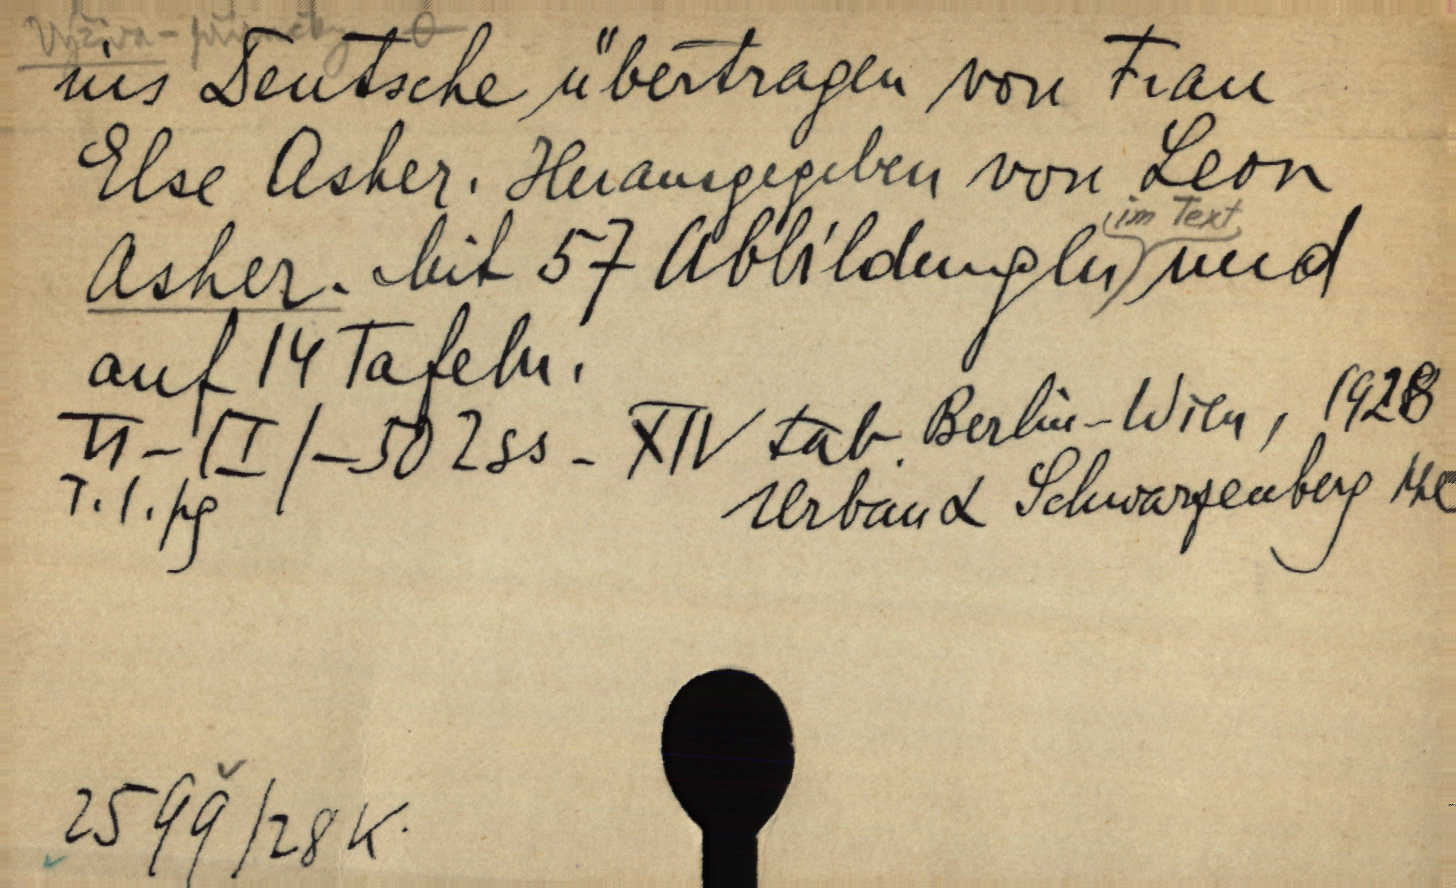 Výživa - příručky
ins Deutsche übertragen von Frau
Else Asher. Herausgegeben von Leon
im Text
Asher. Mit 57 Abbildungen und
auf 14 Tafeln.
VI - (I) - 502 ss - XIV tab. Berlin-Wien, 1928
T. l. pg
Urban & Schwarzenberg
2599/28 K.